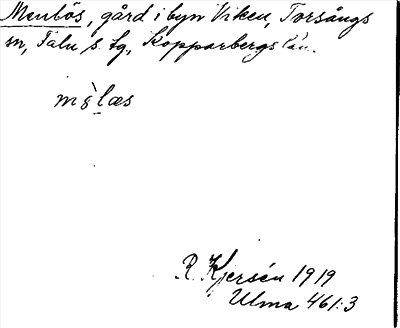 Menlös, gård i byn Viken, Torsångs
sn, Falu s. tg, Kopparbergs län.
læs
R. Kjersén 1919
Ulma 461:3